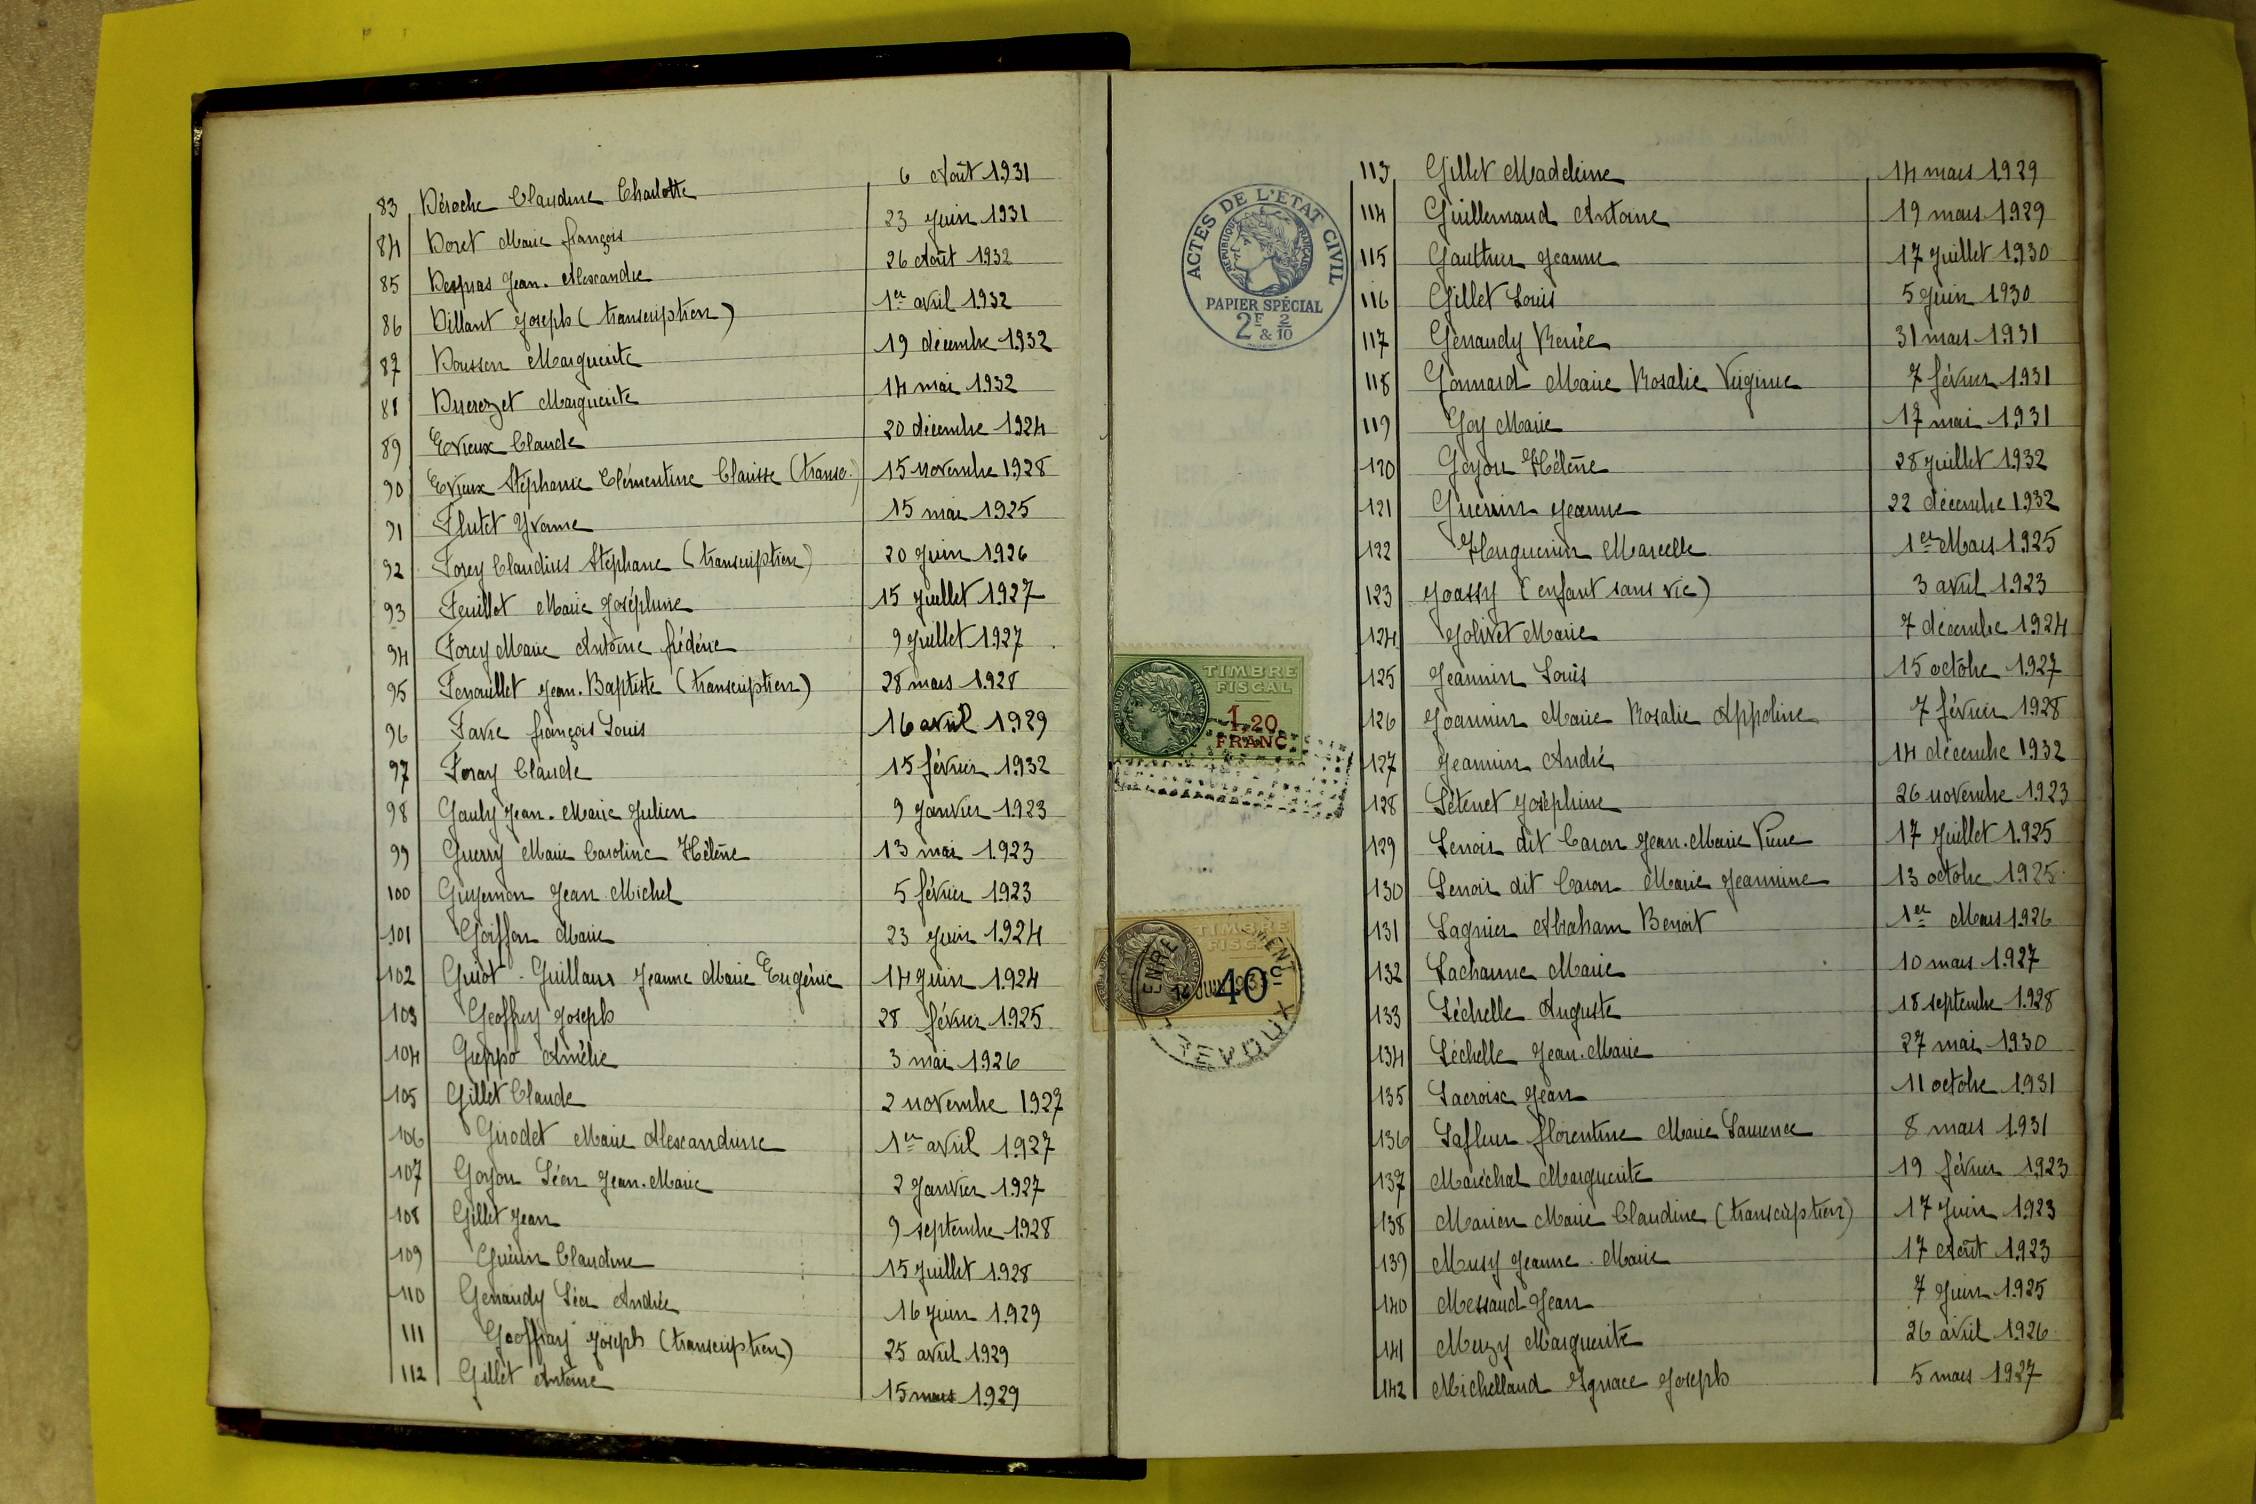 83 Déroche Claudine Charlotte 6 Août 1931
84 Doret Marie françois 23 Juin 1931
85 Despras Jean-Alexandre 26 Août 1932
86 Dillant Joseph (transcription) 1er avril 1932
87 Dousson Marguerite 19 décembre 1932
88 Ducrozet Marguerite 14 mai 1932
89 Evieux Claude 20 décembre 1924
90 Evieux Stéphanie Clémentine Clarisse (transc.) 15 novembre 1928
91 Flutet Yvonne 15 mai 1925
92 Forey Claudius Stéphane (transcription) 20 Juin 1926
93 Feuillet Marie Joséphine 15 Juillet 1927
94 Forey Marie Antoine frédéric 9 Juillet 1927
95 Fenouillet Jean-Baptiste (transcription) 28 mars 1928
96 Favre françois Louis 16 avril 1929
97 Foray Claude 15 février 1932
98 Gauly Jean-Marie Julien 9 Janvier 1923
99 Guerry Marie Caroline Hélène 13 mai 1923
100 Guyennon Jean Michel 5 février 1923
101 Goiffon Marie 23 Juin 1924
102 Guiot-Guillain Jeanne Marie Eugénie 14 Juin 1924
103 Geoffrey Joseph 28 février 1925
104 Greppo Amélie 3 mai 1926
105 Gillet Claude 2 novembre 1927
106 Girodet Marie Alexandrine 1er avril 1927
107 Goyon Léon Jean-Marie 2 Janvier 1927
108 Gillet Jean 9 septembre 1928
109 Guérin Claudine 15 Juillet 1928
110 Genaudy Léa Andrée 16 Juin 1929
111 Geoffray Joseph (transcription) 25 avril 1929
112 Gillet Antoine 15 mars 1929
ACTES DE L'ETAT CIVIL
REPUBLIQUE FRANÇAISE
PAPIER SPÉCIAL
2F & 2/10
TIMBRE
FISCAL
1,20
FRANC
TIMBRE
FISCAL
40c
ENREGISTREMENT
TREVOUX
113 Gillet Madeleine 14 mars 1929
114 Guillemaud Antoine 19 mars 1929
115 Gauthier Jeanne 17 Juillet 1930
116 Gillet Louis 5 Juin 1930
117 Genaudy Renée 31 mars 1931
118 Gonnard Marie Rosalie Virginie 7 février 1931
119 Goy Marie 17 mai 1931
120 Goyon Hélène 28 Juillet 1932
121 Guerrin Jeanne 22 décembre 1932
122 Huguenin Marcelle 1er Mars 1925
123 Joassy (enfant sans vie) 3 avril 1923
124 Jolivet Marie 7 décembre 1924
125 Jeannin Louis 15 octobre 1927
126 Joannin Marie Rosalie Appoline 7 février 1928
127 Jeannin André 14 décembre 1932
128 Létenet Joséphine 26 novembre 1923
129 Lenoir dit Caron Jean-Marie Pierre 17 Juillet 1925
130 Lenoir dit Caron Marie Jeannine 13 octobre 1925
131 Lagnier Abraham Benoit 1er Mars 1926
132 Lachanne Marie 10 mars 1927
133 Léchelle Auguste 18 septembre 1928
134 Léchelle Jean-Marie 27 mai 1930
135 Lacroix Jean 11 octobre 1931
136 Lafleur florentine Marie Laurence 8 mars 1931
137 Maréchal Marguerite 19 février 1923
138 Marion Marie Claudine (transcription) 17 Juin 1923
139 Musy Jeanne-Marie 17 Août 1923
140 Messaud Jean 7 Juin 1925
141 Muzy Marguerite 26 avril 1926
142 Michelland Ignace Joseph 5 mars 1927